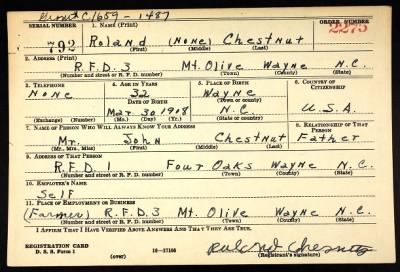 Grout C/1659-1487
SERIAL NUMBER 1. NAME (Print) ORDER NUMBER
792 Roland (None) Chestnut 2275
(First) (Middle) (Last)
2. ADDRESS (Print)
R.F.D. 3 Mt. Olive Wayne N.C.
(Number and street or R. F. D. number) (Town) (County) (State)
3. TELEPHONE 4. AGE IN YEARS 5. PLACE OF BIRTH 6. COUNTRY OF CITIZENSHIP
None 32 Wayne
DATE OF BIRTH (Town or county)
Mar. 30 1908 N.C. U.S.A.
(Exchange) (Number) (Mo.) (Day) (Yr.) (State or country)
7. NAME OF PERSON WHO WILL ALWAYS KNOW YOUR ADDRESS 8. RELATIONSHIP OF THAT PERSON
Mr. John Chestnut Father
(Mr., Mrs., Miss) (First) (Middle) (Last)
9. ADDRESS OF THAT PERSON
R.F.D. 1 Four Oaks Wayne N.C.
(Number and street or R. F. D. number) (Town) (County) (State)
10. EMPLOYER'S NAME
Self
11. PLACE OF EMPLOYMENT OR BUSINESS
(Farmer) R.F.D. 3 Mt. Olive Wayne N.C.
(Number and street or R. F. D. number) (Town) (County) (State)
I AFFIRM THAT I HAVE VERIFIED ABOVE ANSWERS AND THAT THEY ARE TRUE.
REGISTRATION CARD
D. S. S. Form 1 (over) 16—17105 (Registrant's signature)